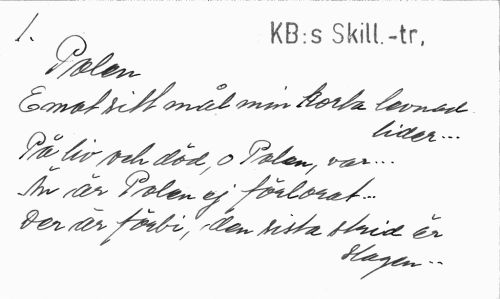 1.
KB:s Skill.-tr,
Polen
Emot sitt mål min korta levnad
lider...
På liv och död, o Polen, var...
Än är Polen ej förlorat...
Det är förbi, den sista strid är
slagen..